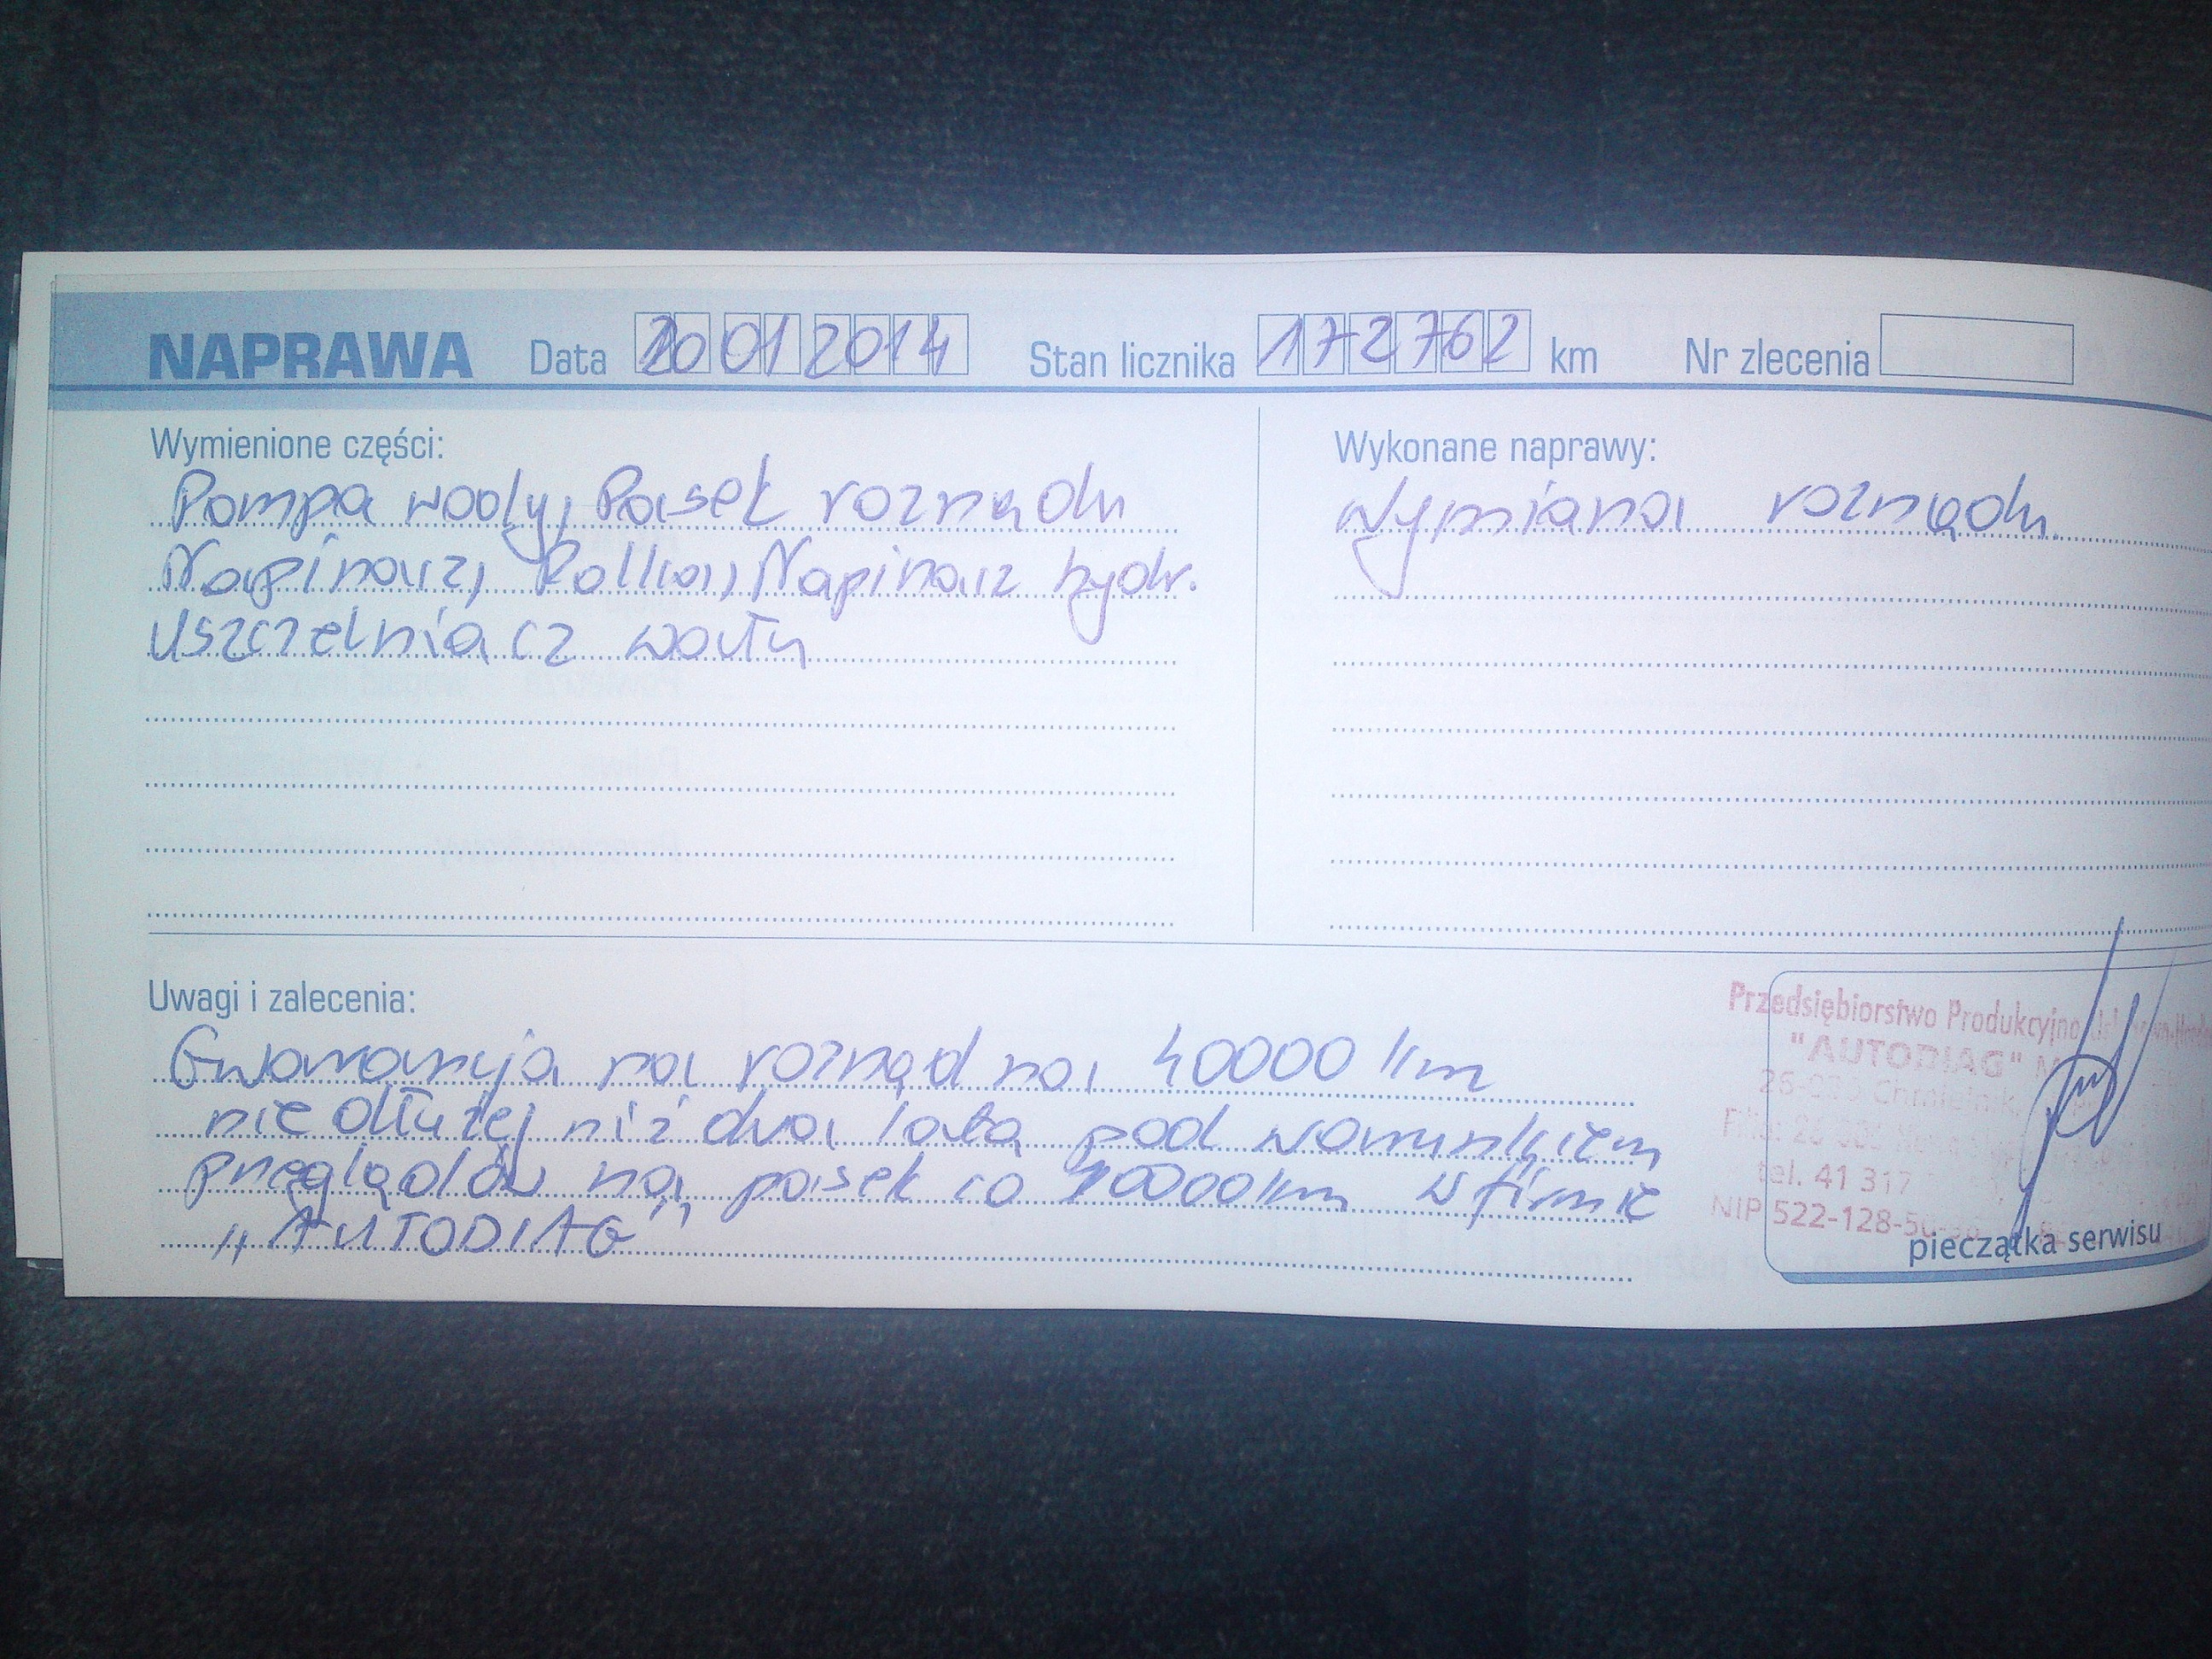 NAPRAWA Data 20 01 2014 Stan licznika 172762 km Nr zlecenia
Wymienione części:
Pompa wody, Pasek rozrządu
Napinacz, Rolka, Napinacz hydr.
Uszczelniacz wału
Wykonane naprawy:
Wymiana rozrządu.
Uwagi i zalecenia:
Gwarancja na rozrząd na 40000 km
nie dłużej niż dwa lata pod warunkiem
przeglądów na pasek co 10000 km w firmie
„AUTODIAG”
Przedsiębiorstwo Produkcyjno
"AUTODIAG"
Chmielnik
tel. 41 317
NIP 522-128-50
pieczątka serwisu